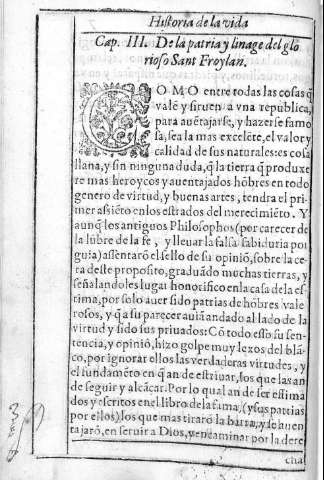 Historia de la vida
Cap. III. De la patria y linage del glo
rioso Sant Froylan.
COMO entre todas las cosas q̃
valẽ y siruen a vna republica,
para auẽtajarse, y hazerse famo
sa, sea la mas excelẽte, el valor y
calidad de sus naturales: es cosa
llana, y sin ninguna duda, q̃ la tierra q̃ produxe
re mas heroycos y auentajados hõbres en todo
genero de virtud, y buenas artes, tendra el pri
mer assiẽto en los estrados del merecimiẽto. Y
aunq̃ los antiguos Philosophos (por carecer de
la lũbre de la fe, y lleuar la falsa sabiduria por
guia) assentarõ el sello de su opiniõ, sobre la ce
ra deste proposito, graduãdo muchas tierras, y
señalandoles lugar honorifico en la casa de la es
tima, por solo auer sido patrias de hõbres vale
rosos, y q̃ a su parecer auiã andado al lado de la
virtud y sido sus priuados: Cõ todo esso su sen-
tencia, y opiniõ, hizo golpe muy lexos del blã-
co, por ignorar ellos las verdaderas virtudes, y
el fundamẽto en q̃ an de estriuar, los que las an
de seguir y alcãçar. Por lo qual an de ser estima
dos y escritos en el libro de la fama, (y sus patrias
por ellos) los que mas tirarõ la barra, y se auen
tajarõ, en seruir a Dios, y encaminar por la dere
cha